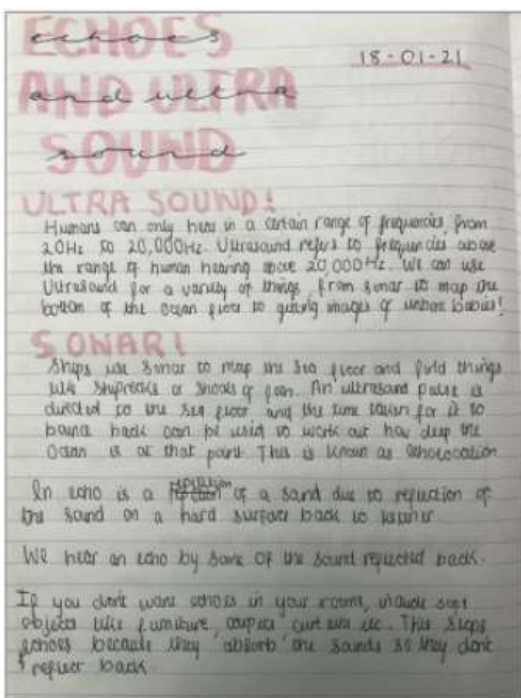 ECHOES
echoes
18-01-21
AND ULTRA
and ultra
SOUND
sound
ULTRA SOUND!
Humans can only hear in a certain range of frequencies, from
20Hz to 20,000Hz. Ultrasound refers to frequencies above
the range of human hearing above 20,000Hz. We can use
Ultrasound for a variety of things, from sonar to map the
bottom of the ocean floor to getting images of unborn babies!
SONAR!
Ships use sonar to map the sea floor and find things
like shiprecks or shoals of An ultrasound pulse is
directed to the sea floor and the time taken for it to
back can be used to work out how deep the
Ocean is at that point. This is known as echolocation
echo is a of a sound due to reflection of
the sound on a hard surface back to listener
We hear an echo by some of the sound reflected back.
If you don't want echoes in your rooms, include soft
objects like furniture, curtains etc. This stops
echoes because they 'absorb' the sounds so they don't
reflect back.